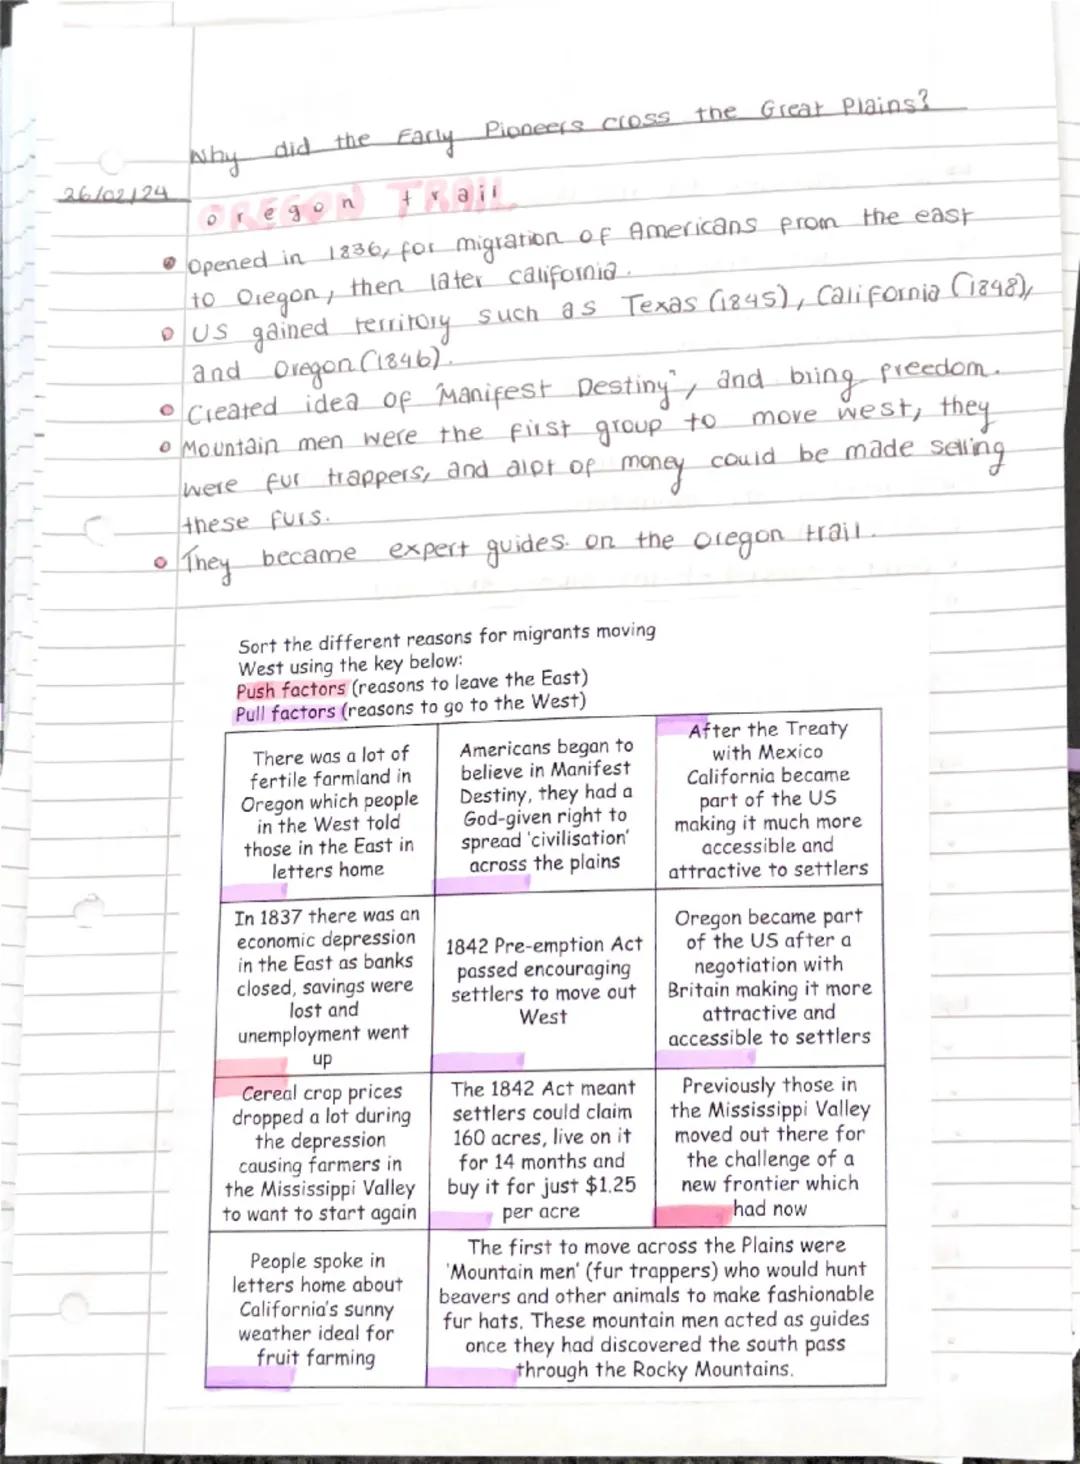 Why did the Early Pioneers cross the Great Plains?
26/02/24
OREGON TRAIL
oregon trail
Opened in 1836, for migration of Americans from the east
to Oregon, then later california.
US gained territory such as Texas (1845), California (1848),
and Oregon (1846).
Created idea of "Manifest Destiny", and bring freedom.
Mountain men were the first group to move west, they
were fur trappers, and alot of money could be made selling
these furs.
They became expert guides on the oregon trail.
Sort the different reasons for migrants moving
West using the key below:
Push factors (reasons to leave the East)
Pull factors (reasons to go to the West)
There was a lot of
fertile farmland in
Oregon which people
in the West told
those in the East in
letters home
Americans began to
believe in Manifest
Destiny, they had a
God-given right to
spread 'civilisation'
across the plains
After the Treaty
with Mexico
California became
part of the US
making it much more
accessible and
attractive to settlers
In 1837 there was an
economic depression
in the East as banks
closed, savings were
lost and
unemployment went
up
1842 Pre-emption Act
passed encouraging
settlers to move out
West
Oregon became part
of the US after a
negotiation with
Britain making it more
attractive and
accessible to settlers
Cereal crop prices
dropped a lot during
the depression
causing farmers in
the Mississippi Valley
to want to start again
The 1842 Act meant
settlers could claim
160 acres, live on it
for 14 months and
buy it for just $1.25
per acre
Previously those in
the Mississippi Valley
moved out there for
the challenge of a
new frontier which
had now
People spoke in
letters home about
California's sunny
weather ideal for
fruit farming
The first to move across the Plains were
'Mountain men' (fur trappers) who would hunt
beavers and other animals to make fashionable
fur hats. These mountain men acted as guides
once they had discovered the south pass
through the Rocky Mountains.